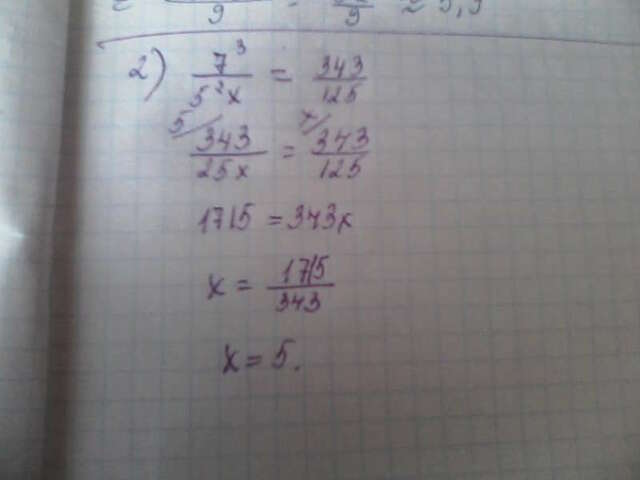 9 9 ≈ 5,9
2) 7³/5²x = 343/125
5/ 343/25x = x/ 343/125
1715 = 343x
x = 1715/343
x = 5.